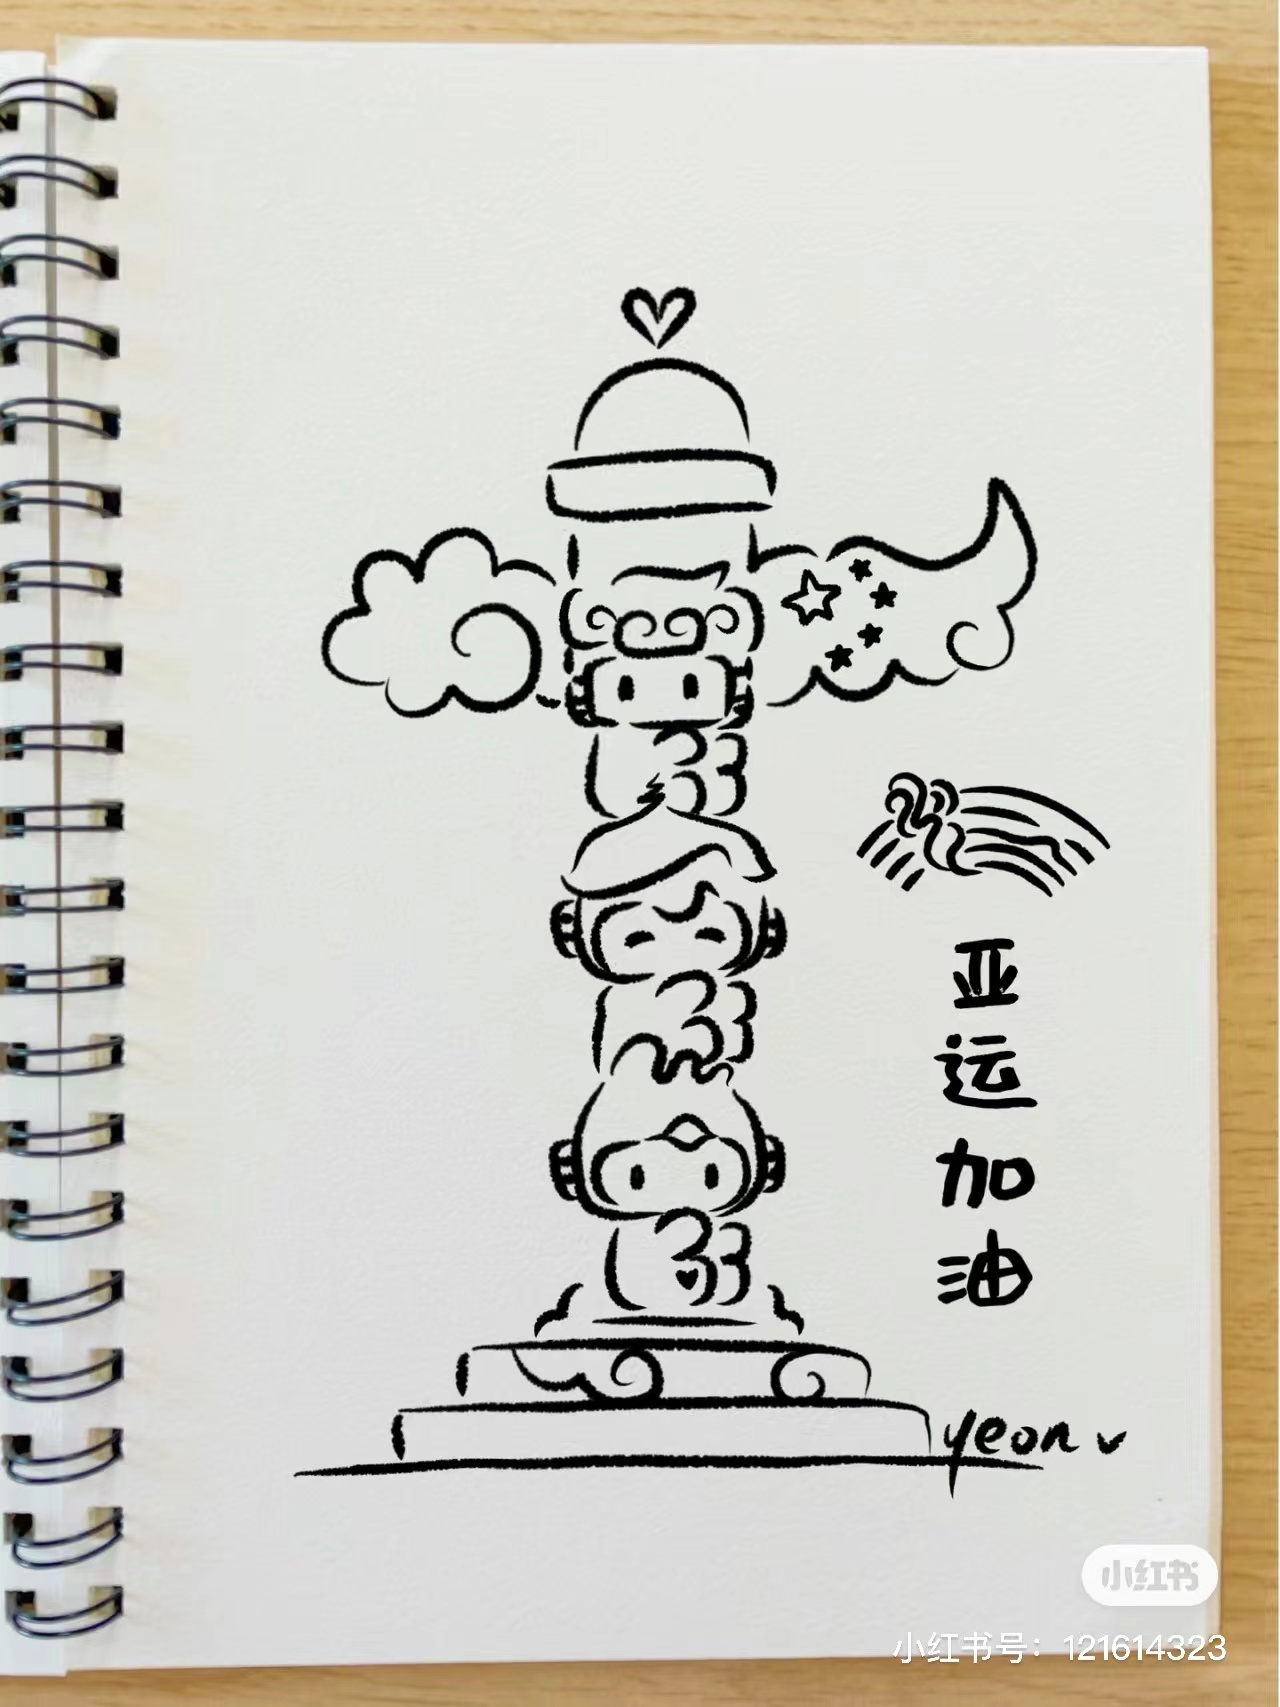 亚
运
加
油
yeon
小红书
小红书号：121614323